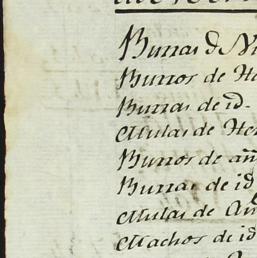 Burras de
Burros de
Burras de id.
Mulas de
Burros de
Burras de id
Mulas de
Machos de id